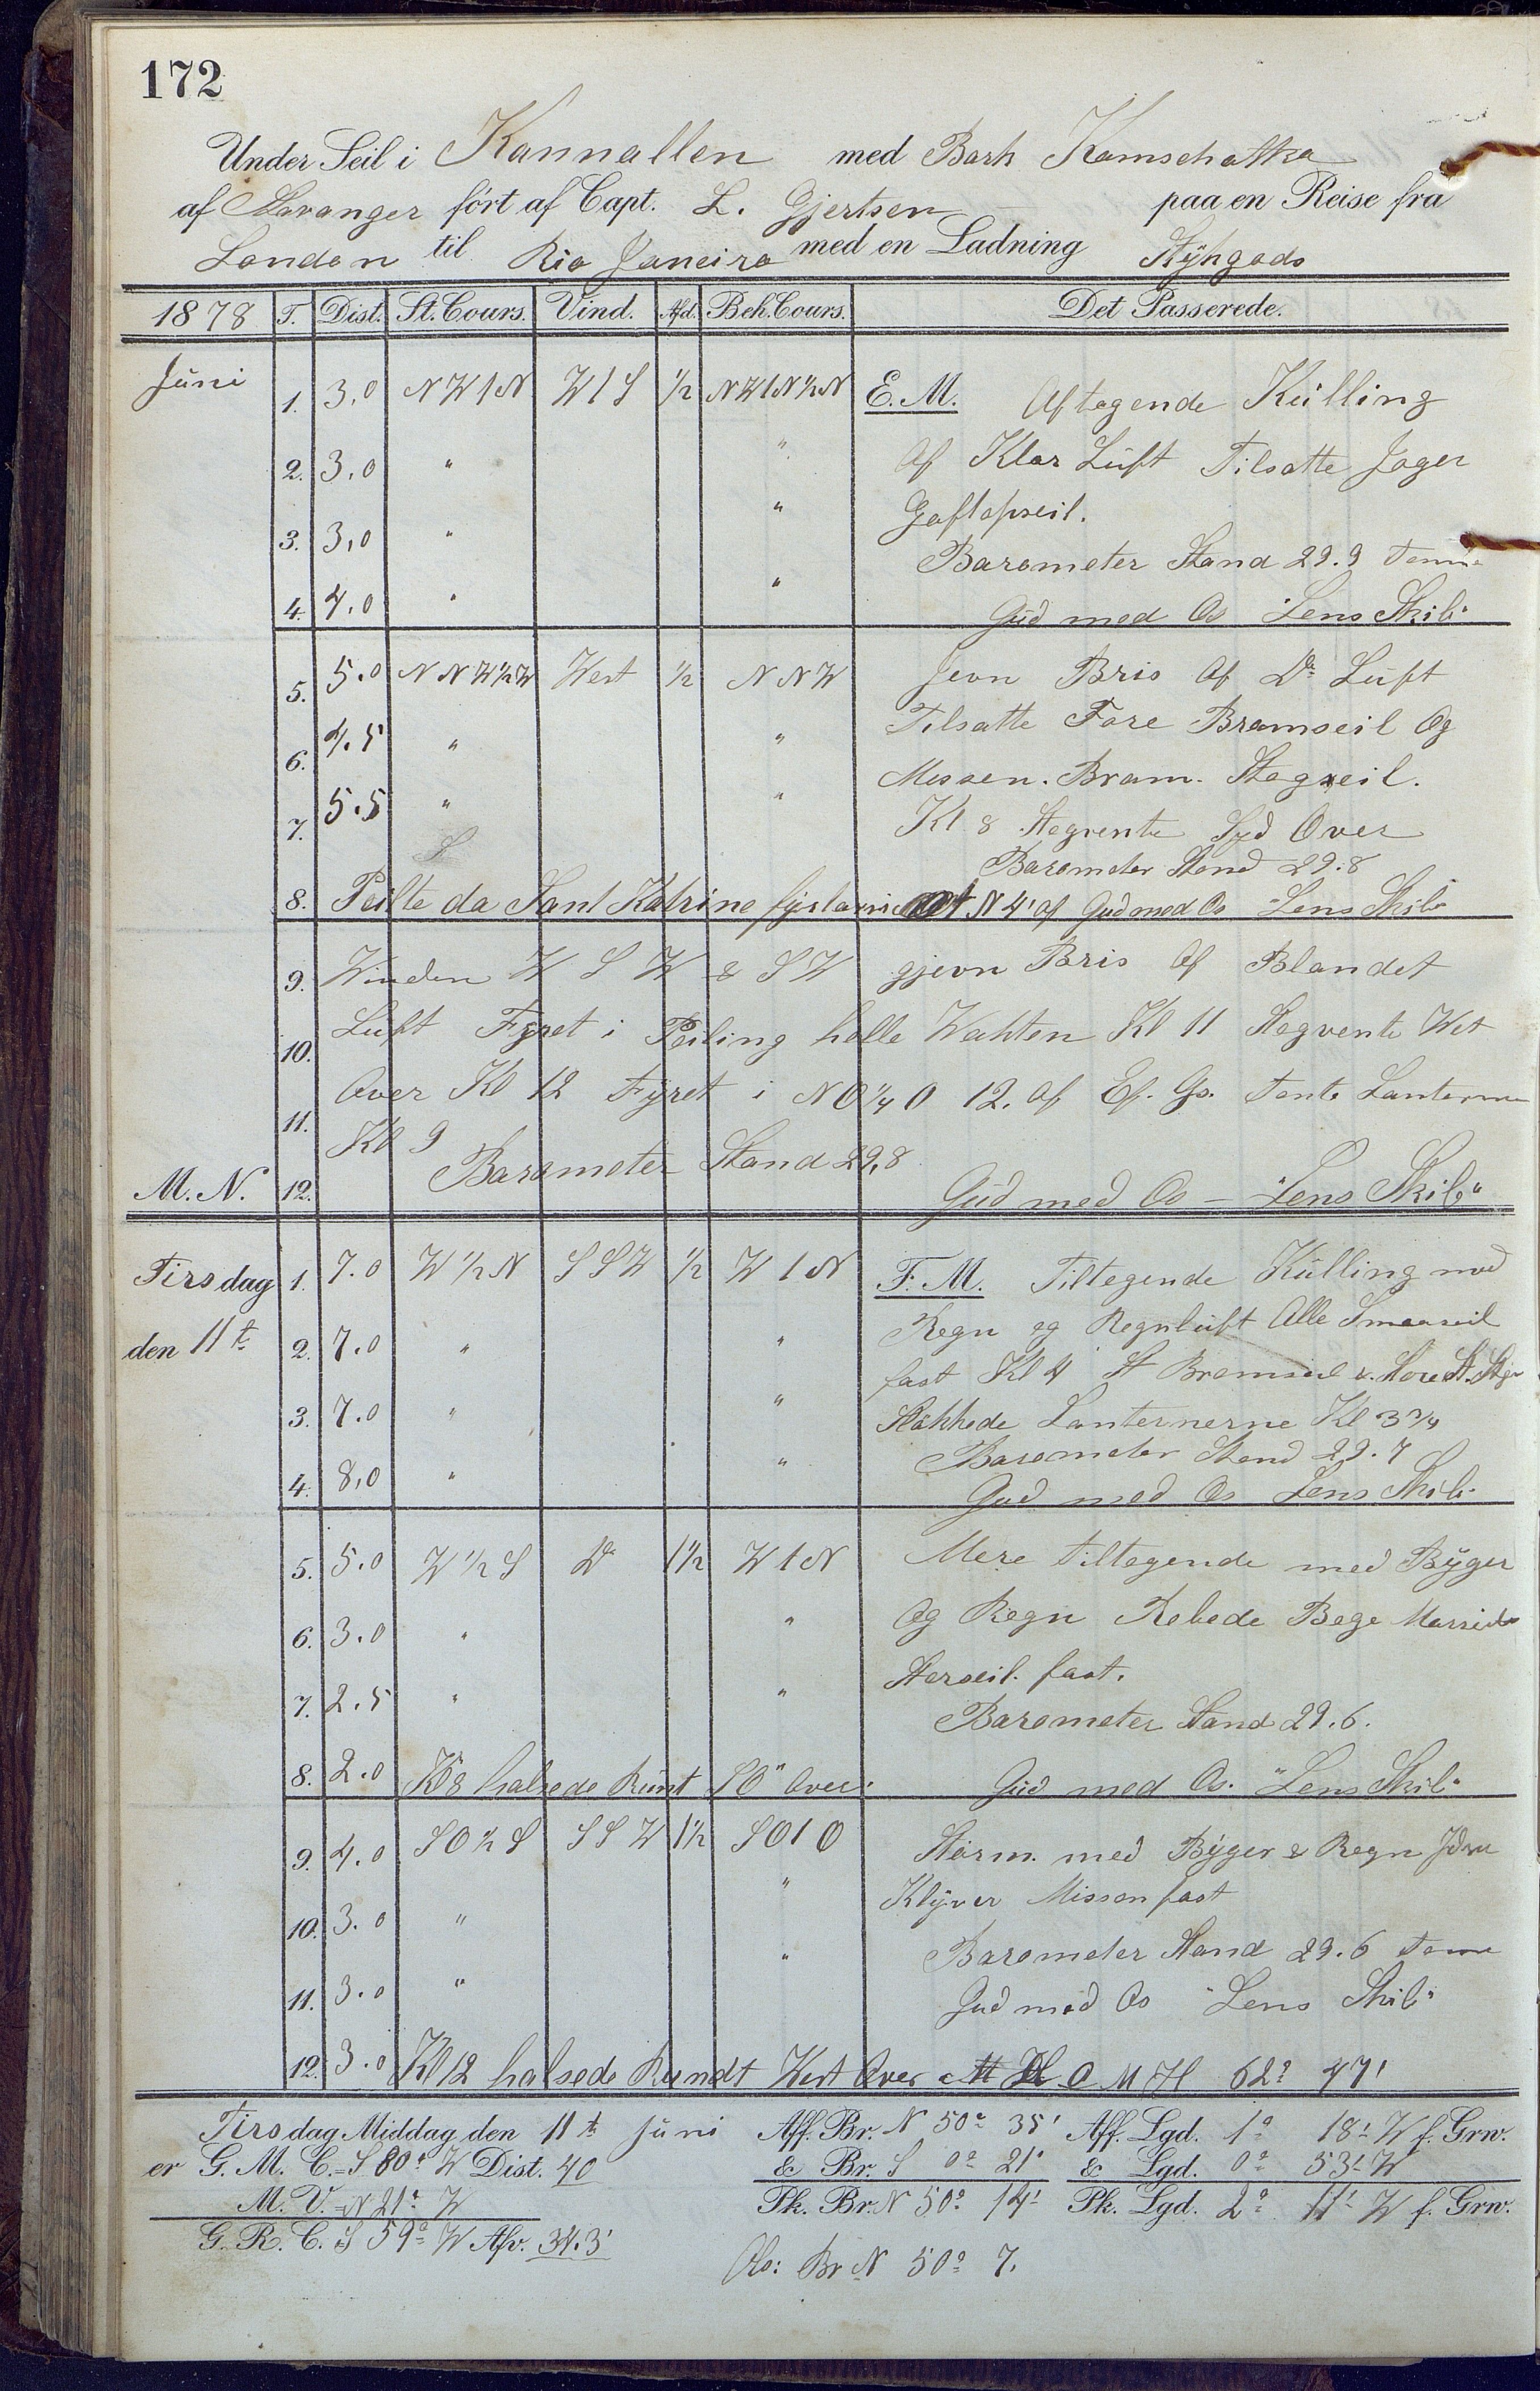 172
Under Seil i Kannallen med Bark Kamschatka
af Stavanger fört af Capt. L. Gjertsen paa en Reise fra
London til Rio Janeiro med en Ladning Stÿkgods
1878 T. Dist. St. Cours. Vind. Afd. Beh. Cours. Det Passerede.
Jüni 1. 3,0 NW1N W1S ½ NW1N½N E.M. Aftagende Külling
2. 3,0 " " Af Klar Lüft Tilsatte Jager
3. 3,0 " " Gaftopseil.
Barometer Stand 29.9
4. 4.0 " " Güd med Os Lens Skib"
5. 5.0 NNW½W West ½ NNW Jevn Bris Af Do Lüft
6. 4.5 " " Tilsatte Fore Bramseil Og
7. 5.5 " " Messen. Bram. Stagseil.
Kl 8 Stagvente Syd Over
Barometer Stand 29.8
8. Peilte da Sant Katrine N 4' af Gud med Os Lens Skib
9. Winden W S W & S W gjevn Bris Af Blandet
10. Lüft Fÿret i Peiling holle Wakten Kl 11 Stagvente Wst
11. Over Kl 12 Fÿret i NO¼O 12. Af Ef. Gs. Tente Lanterne
Kl 9 Barometer Stand 29,8
M.N. 12. Güd med Os — "Lens Skib"
Tirsdag 1. 7.0 W½N SSW ½ W1N F.M. Tiltagende Külling med
den 11t 2. 7.0 " " Regn og Regnlüft Alle Smaaseil
fast Kl 4 St Bramseil & Store St.
3. 7.0 " " Slükkede Lanternerne Kl 3¾
Barometer Stand 29.7
4. 8,0 " " Gud med Os Lens Skib
5. 5.0 W½S Do 1½ W1N Mere tiltagende med Bÿger
6. 3.0 " " Og Regn Rebede Bege
7. 2.5 " " Storseil fast.
Barometer Stand 29.6.
8. 2.0 Kl 8 halsede Rünt SO" Over. Güd med Os. "Lens Skib"
9. 4.0 SO½S SSW 1½ SO1O Storm. med Bÿger & Regn
" Klÿver Missen fast
10. 3.0 "
" Barometer Stand 29.6
11. 3.0 " Gud med Os "Lens Skib"
12. 3.0 Kl 12 halsede Rundt West Over O M H 62° 47'
Tirsdag Middag den 11t Jüni Aff. Br. N 50° 35' Aff. Lgd. 1° 18' W f. Grw.
er G. M. C. = S 80° W Dist. 40 & Br. S 0° 21' & Lgd. 0° 53' W
M. V. = N 21° W Pk. Br. N 50° 14' Pk. Lgd. 2° 11' W f. Grw.
G. R. C. S 59° W Afv. 34.3'
Obs: Br N 50° 7.